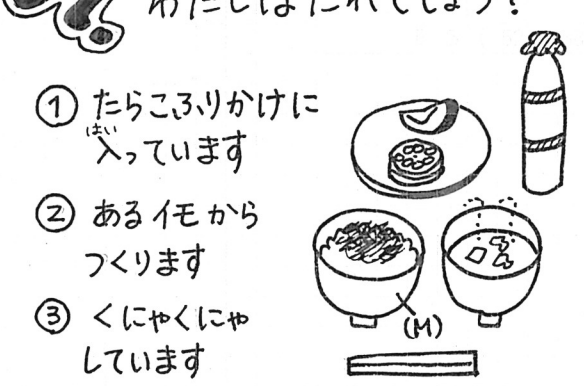 わたしはだれでしょう?
① たらこふりかけに
はい
入っています
② あるイモから
つくります
③ くにゃくにゃ
しています
(M)